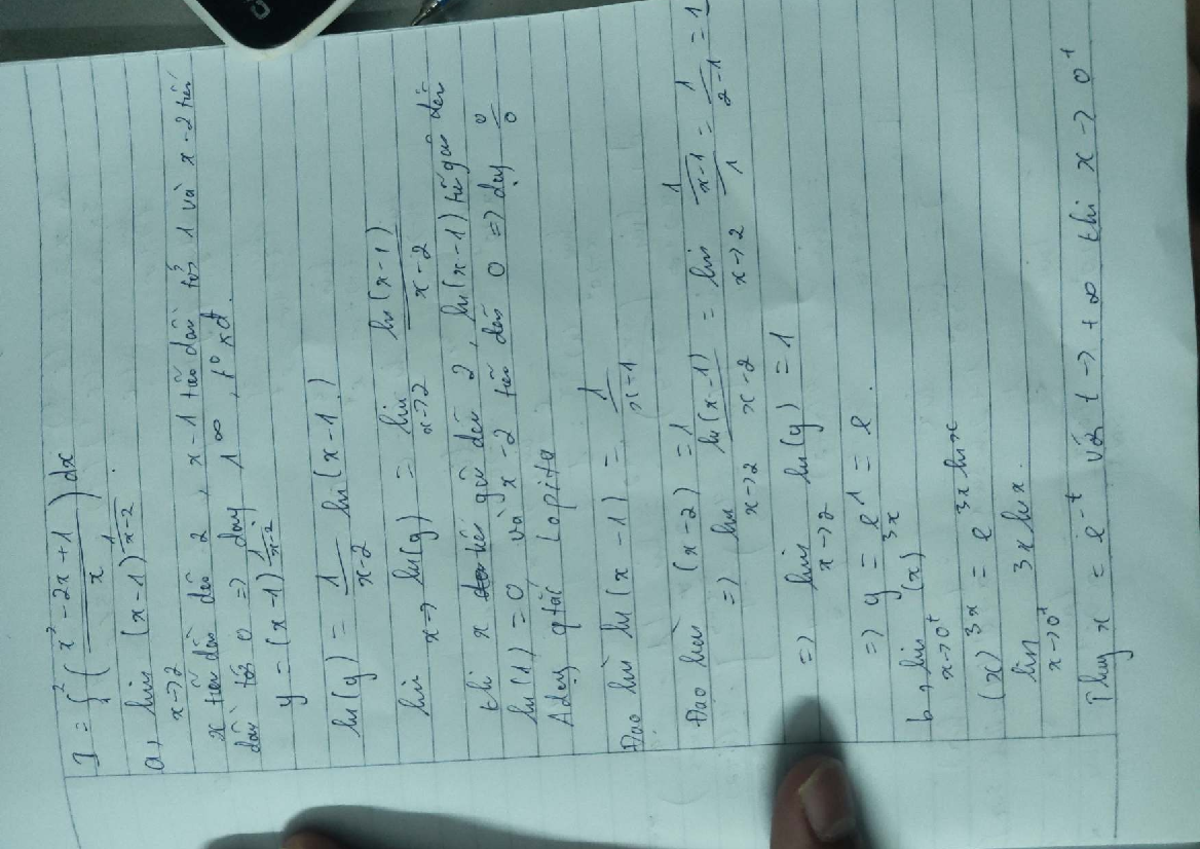 I = ∫₁² ( (x² - 2x + 1) / x ) dx
a, lim x→2 (x - 1)^(1/(x-2)).
x tiến dần đến 2, x - 1 tiến dần tới 1 và x - 2 tiến
dần tới 0 ⇒ dạng 1 ∞, 1⁰ xđ.
y = (x - 1)^(1/(x-2))
ln(y) = 1/(x-2) ln(x - 1)
lim x→ ln(y) = lim x→2 ln(x-1)/(x-2)
thi x tiến gần đến 2, ln(x-1) tiến gần đến
ln(1) = 0 và x - 2 tiến đến 0 ⇒ dạng 0/0
Adụng qtắc Lopita
Đạo hàm ln(x - 1) = 1/(x-1)
Đạo hàm (x - 2) = 1
⇒ lim x→2 ln(x-1)/(x-2) = lim x→2 (1/(x-1))/1 = 1/(2-1) = 1
⇒ lim x→2 ln(y) = 1
⇒ y = e¹ = e.
b, lim x→0⁺ (x)^(3x)
(x)^(3x) = e^(3x ln x)
lim x→0⁺ 3x ln x.
Thay x = e^(-t) với t → +∞ thì x → 0⁺